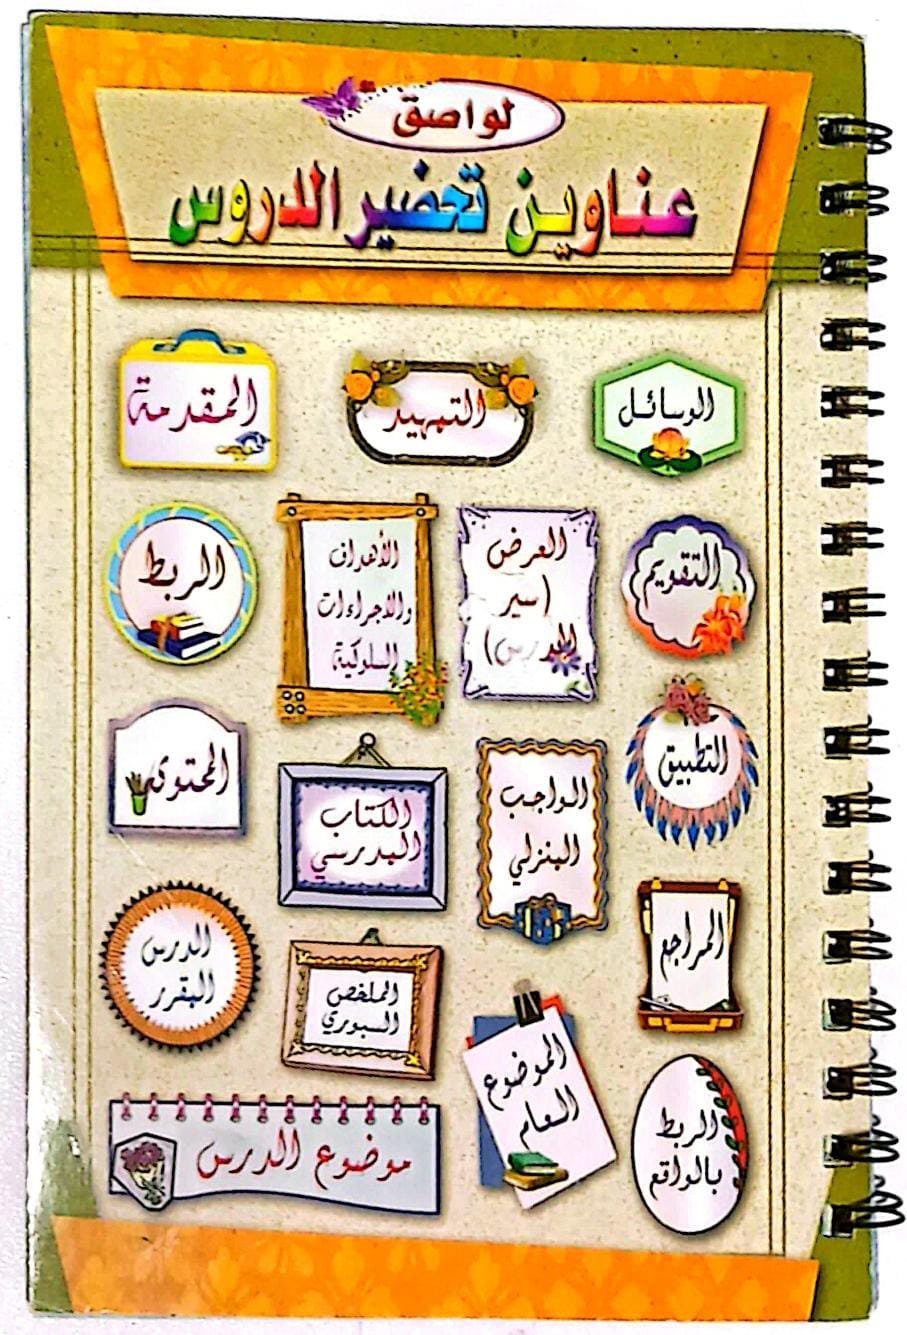 لواصق
عناوين تحضير الدروس
الوسائل
التمهيد
المقدمة
التقويم
العرض
(سير
الدرس)
الأهداف
والاجراءات
السلوكية
الربط
التطبيق
الواجب
المنزلي
الكتاب
المدرسي
المحتوى
المراجع
الموضوع
العام
الملخص
السبوري
الدرس
المقرر
الربط
بالواقع
موضوع الدرس